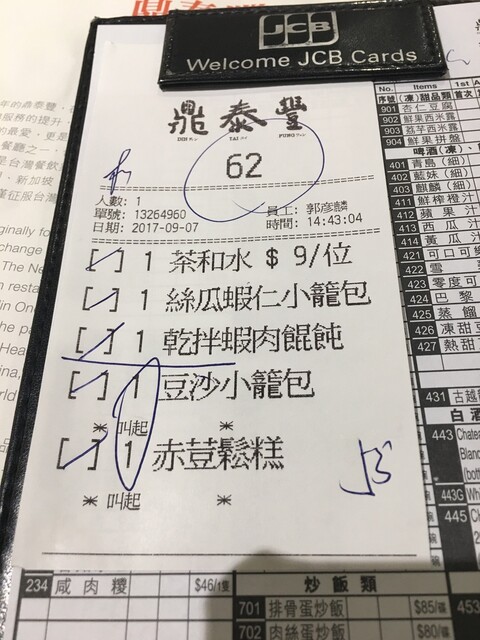 JCB
Welcome JCB Cards
鼎泰豐
DIN TAI FUNG
62
人數: 1
單號: 13264960
員工: 郭彥麟
日期: 2017-09-07
時間: 14:43:04
[ ] 1 茶和水 $ 9/位
[ ] 1 絲瓜蝦仁小籠包
[ ] 1 乾拌蝦肉餛飩
[ ] 1 豆沙小籠包
* 叫起 *
[ ] 1 赤荳鬆糕
* 叫起 *
234 咸肉糭 $46/1隻
炒飯類
701 排骨蛋炒飯 $85/碟
702 肉絲蛋炒飯 $80/碟
453
No. Items 1st A
序號 (凍)甜品類 首次
901 杏仁豆腐
902 鮮果西米露
903 荔芋西米露
904 鮮果拼盤
啤酒(凍)、
401 青島 (細)
402 藍妹 (細)
403 麒麟 (細)
411 鮮榨橙汁
412 蘋果汁
413 西瓜汁
414 黃瓜汁
421 可口可樂
422 雪
423 零度可
424 巴黎
425 蒸餾
426 凍甜豆
427 熱甜
431 古越
白酒
443 Chate
Blanc
(bott
443G Wh
445 Chat
年的鼎泰豐，
服務的提升，
的最愛，更是
餐廳之一，
是台灣餐飲
、新加坡
僅征服台灣
ginally fo
change
The Ne
restau
in On
the pa
Hea
air